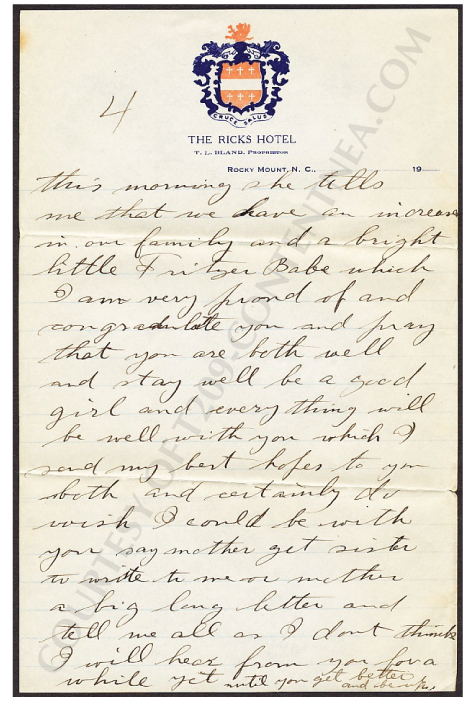 4
CRUCE SALUS
THE RICKS HOTEL
T. L. BLAND, PROPRIETOR
ROCKY MOUNT, N. C., 19
this morning she tells
me that we have an increase
in our family and a bright
little Fritzer Babe which
I am very proud of and
congradulate you and pray
that you are both well
and stay well be a good
girl and everything will
be well with you which I
send my best hopes to you
both and certainly do
wish I could be with
you say mother get sister
to write to me or mother
a big long letter and
tell me all as I dont think
I will hear from you for a
while yet until you get better
and be up,
COURTESY OF T209-CONTENTNEA.COM